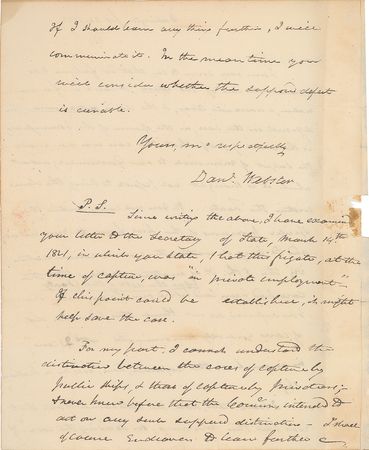 If I should learn any thing further, I will
communicate it. In the mean time you
will consider whether the suppose defect
is curable.
Yours, mo respectfully
Danl. Webster
P.S. Since writing the above, I have examined
your letter to the Secretary of State, March 14th
1821, in which you state, that this frigate, at the
time of capture, was "in private employment"
If this point could be established, it might
help save the case.
For my part, I cannot understand the
distinction between the cases of capture by
public ships, & those of capture by privateers;
& never knew before that the Com'rs intended to
act on any such supposed distinction - I shall
of course endeavor to learn further